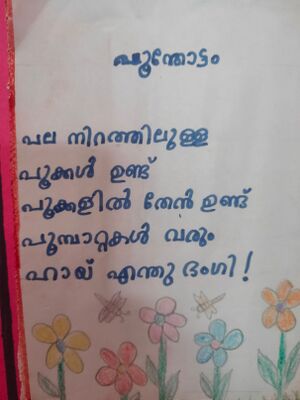 പൂന്തോട്ടം
പല നിറത്തിലുള്ള
പൂക്കൾ ഉണ്ട്
പൂക്കളിൽ തേൻ ഉണ്ട്
പൂമ്പാറ്റകൾ വരും
ഹായ് എന്തു ഭംഗി!